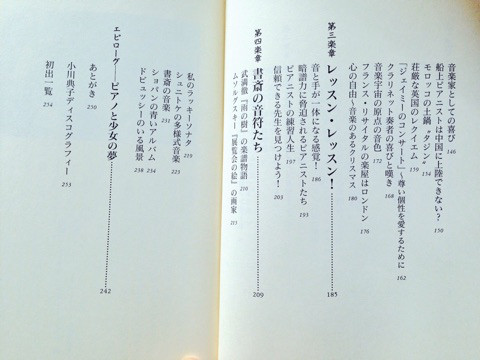 音楽家としての喜び 146
船上ピアニストは中国に上陸できない? 150
モロッコの土鍋“タジン” 154
荘厳な英国のレクイエム 159
「ジェイミーのコンサート」〜尊い個性を愛するために 162
クラリネット奏者の喜びと嘆き 168
音楽宇宙の原点の音色 172
フランス・リサイタルの楽屋はロンドン 176
心の自由〜音楽のあるクリスマス 180
第三楽章 レッスン・レッスン! 185
音と手が一体になる感覚! 186
暗譜力に脅迫されるピアニストたち 193
ピアニストの練習人生 197
信頼できる先生を見つけよう! 203
第四楽章 書斎の音符たち 209
武満徹『雨の樹』の楽譜物語 210
ムソルグスキー『展覧会の絵』の画家 215
私のラッキーソナタ 219
シュニトケの多様式音楽 225
書斎の音楽 231
ショパンの青いアルバム 234
ドビュッシーのいる風景 238
エピローグ──ピアノと少女の夢 242
あとがき 250
小川典子ディスコグラフィー 253
初出一覧 254